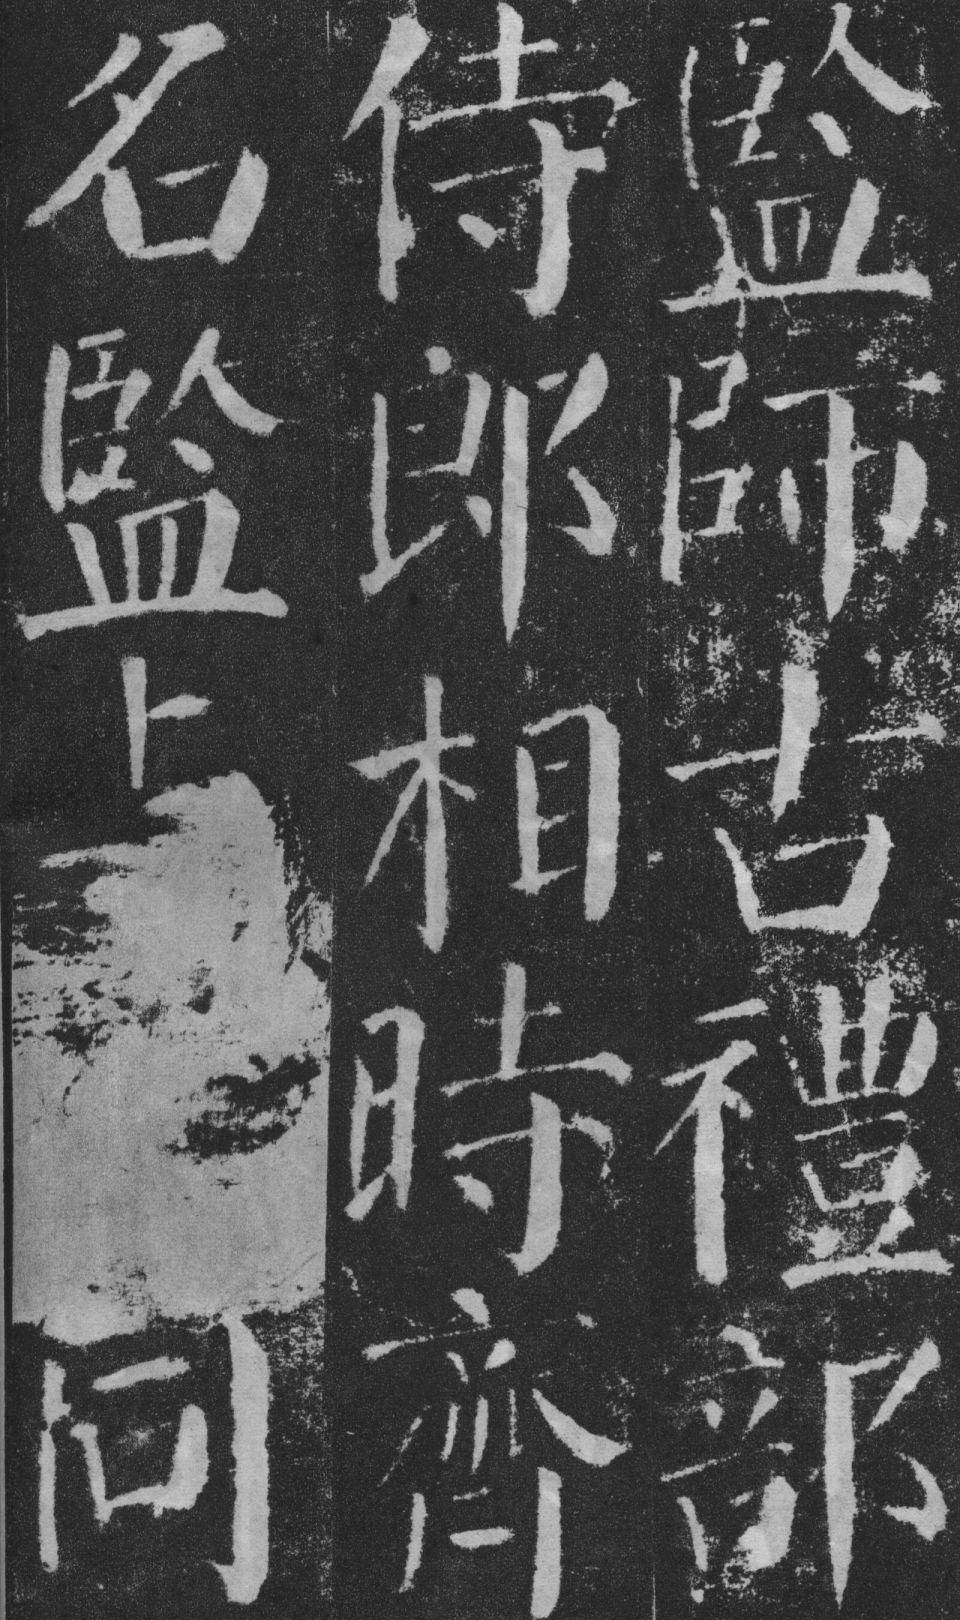 監師古禮部
侍郎相時齊
名監與同